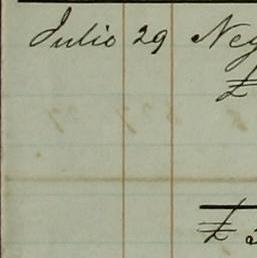 Julio 29 Neg
£
£